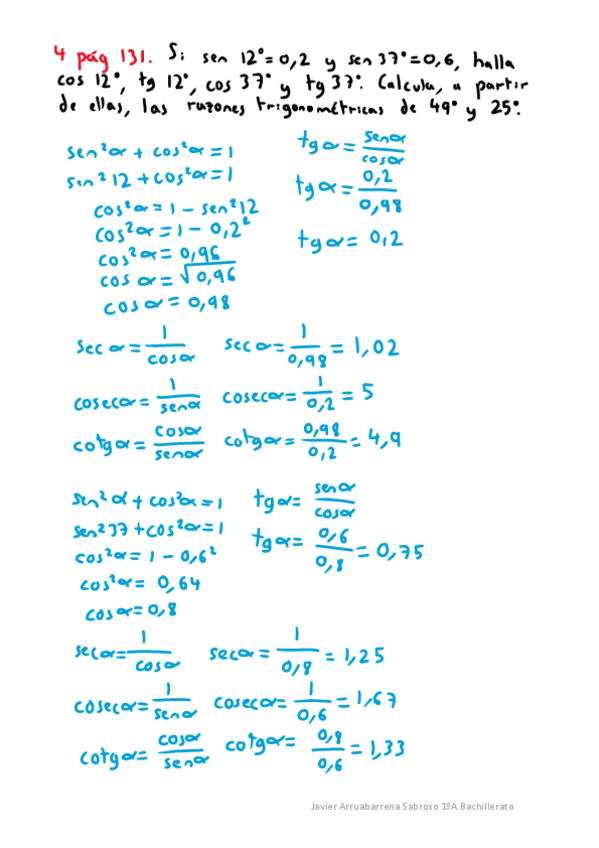 4 pág 131. Si sen 12°=0,2 y sen 37°=0,6, halla
cos 12°, tg 12°, cos 37° y tg 37°. Calcula, a partir
de ellas, las razones trigonométricas de 49° y 25°.
sen²α + cos²α = 1
sen²12 + cos²α = 1
cos²α = 1 - sen²12
cos²α = 1 - 0,2²
cos²α = 0,96
cos α = √0,96
cos α = 0,98
tg α = senα/cosα
tg α = 0,2/0,98
tg α = 0,2
sec α = 1/cosα sec α = 1/0,98 = 1,02
cosecα = 1/senα cosecα = 1/0,2 = 5
cotgα = cosα/senα cotgα = 0,98/0,2 = 4,9
sen²α + cos²α = 1
sen²37 + cos²α = 1
cos²α = 1 - 0,6²
cos²α = 0,64
cosα = 0,8
tgα = senα/cosα
tgα = 0,6/0,8 = 0,75
secα = 1/cosα secα = 1/0,8 = 1,25
cosecα = 1/senα cosecα = 1/0,6 = 1,67
cotgα = cosα/senα cotgα = 0,8/0,6 = 1,33
Javier Arruabarrena Sabroso 1ºA Bachillerato